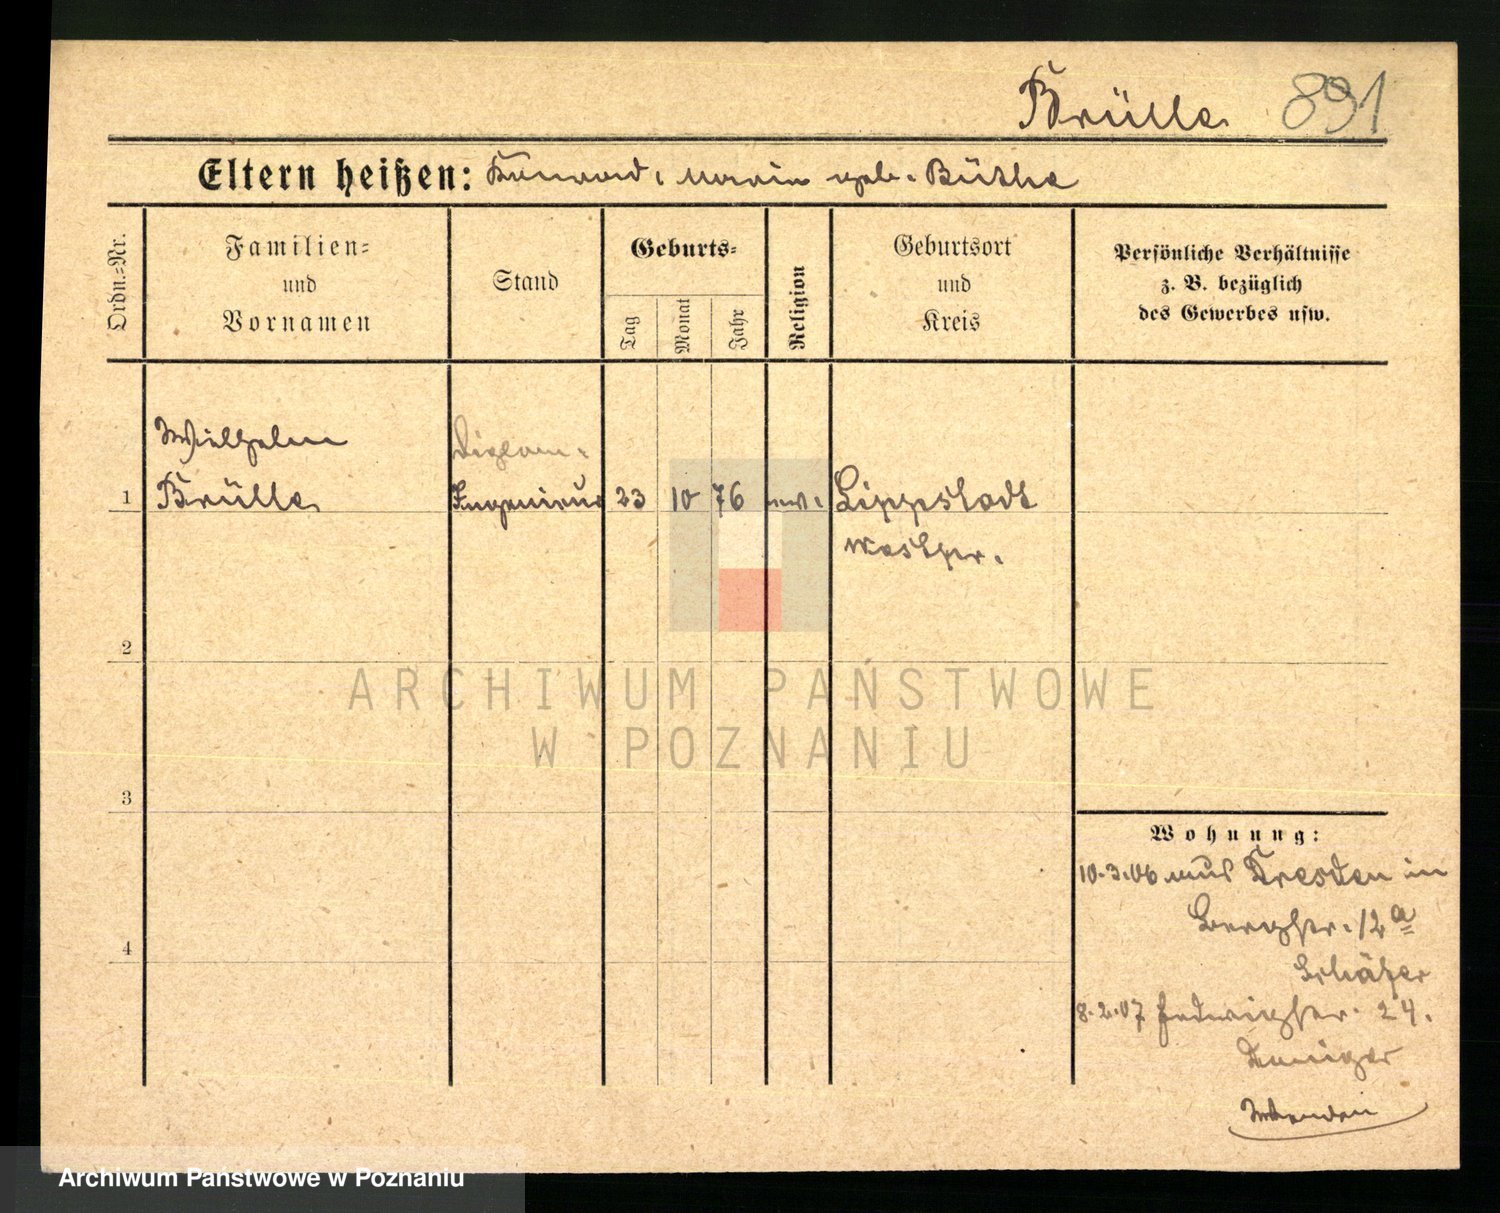 Brülle 891
Eltern heißen: Konrad, Maria geb. Büthe
Ordn.=Nr.
Familien=
und
Vornamen
Stand
Geburts=
Tag
Monat
Jahr
Religion
Geburtsort
und
Kreis
Persönliche Verhältnisse
z. B. bezüglich
des Gewerbes usw.
Wilhelm
Diplom-
1 Brülle Ingenieur 23 10 76 Lippstadt
2
3
4
Wohnung:
10.3.06 aus Dresden in
Bergstr. 12a
Schäfer
8.2.07 Hedwigstr. 24.
ARCHIWUM PAŃSTWOWE
W POZNANIU
Archiwum Państwowe w Poznaniu